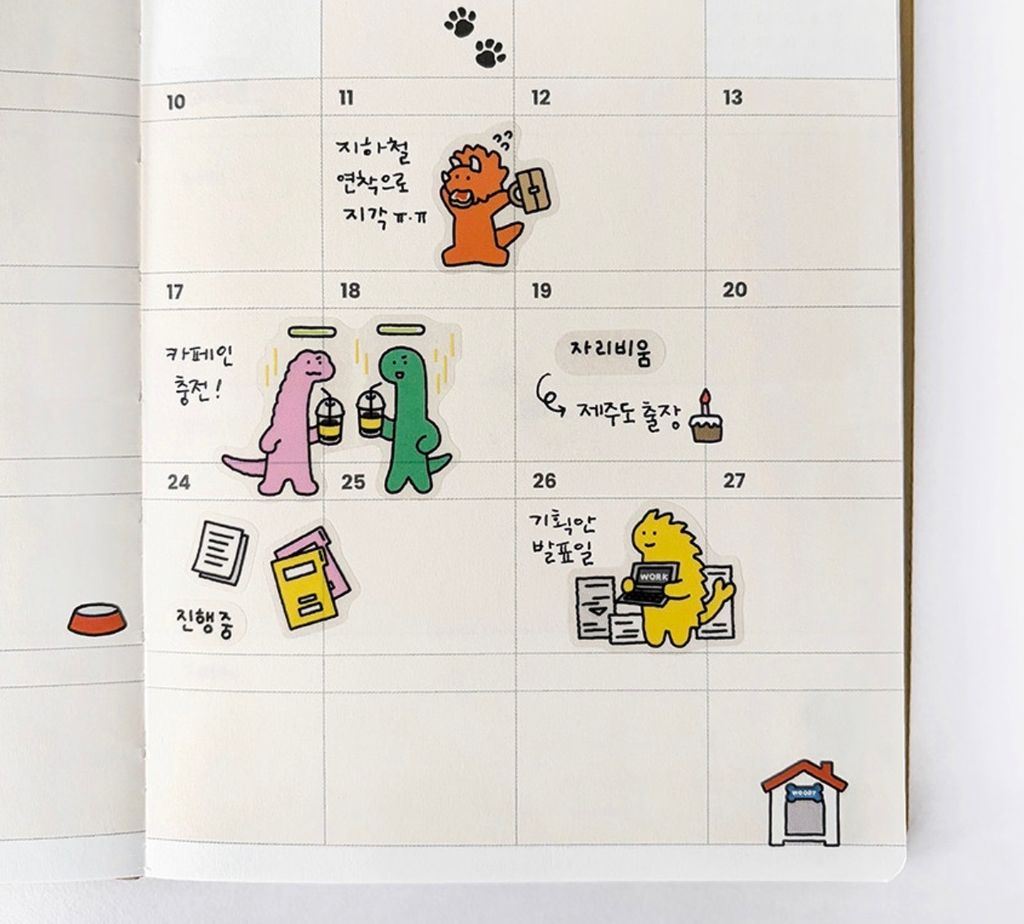 10
11
12
13
지하철
연착으로
지각 ㅠ.ㅠ
17
18
19
20
카페인
충전!
자리비움
제주도 출장
24
25
26
27
진행중
기획안
발표일
WORK
WOODY